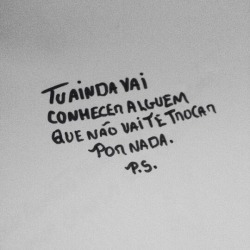 TU AINDA VAI
CONHECER ALGUEM
QUE NÃO VAI TE TROCAR
POR NADA.
P.S.